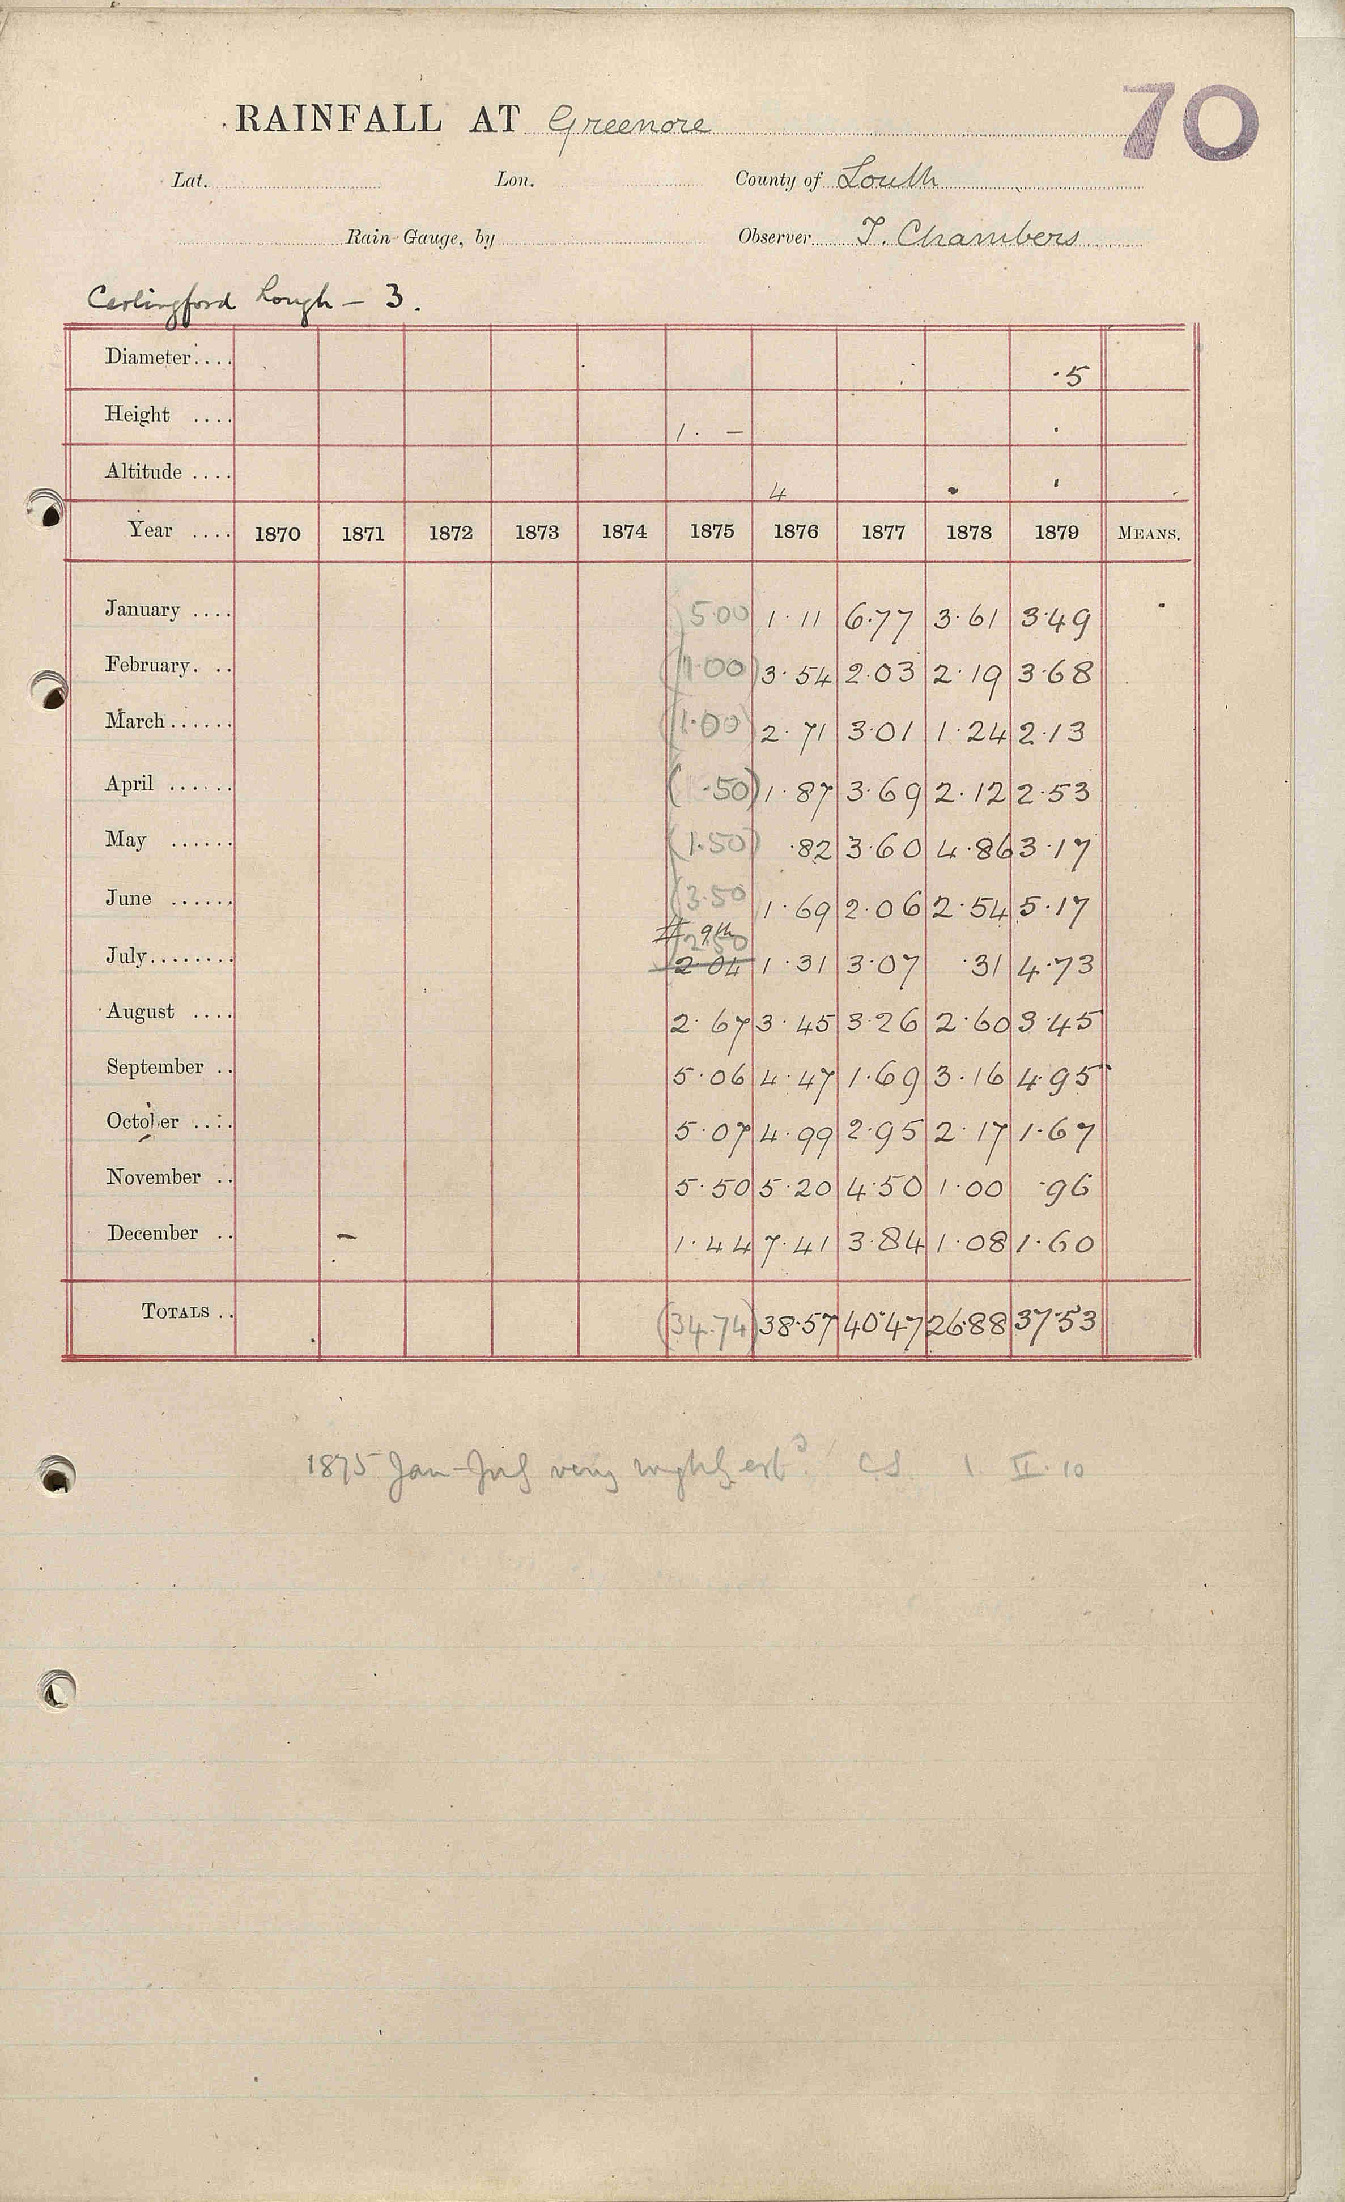 RAINFALL AT Greenore 70
Lat. Lon. County of Louth
Rain-Gauge, by Observer T. Chambers
Carlingford Lough - 3.
Diameter.... ·5
Height .... 1. -
Altitude .... 4
Year .... 1870 1871 1872 1873 1874 1875 1876 1877 1878 1879 MEANS.
January .... 5.00 1.11 6.77 3.61 3.49
February. .. (1.00) 3.54 2.03 2.19 3.68
March...... (1.00) 2.71 3.01 1.24 2.13
April ...... (.50) 1.87 3.69 2.12 2.53
May ...... (1.50) .82 3.60 4.86 3.17
June ...... (3.50 1.69 2.06 2.54 5.17
# 9th
2.50
July........ 2.04 1.31 3.07 .31 4.73
August .... 2.67 3.45 3.26 2.60 3.45
September .. 5.06 4.47 1.69 3.16 4.95
October .... 5.07 4.99 2.95 2.17 1.67
November .. 5.50 5.20 4.50 1.00 .96
December .. 1.44 7.41 3.84 1.08 1.60
TOTALS .. (34.74) 38.57 40.47 26.88 37.53
1875 Jan-July very roughly estd. CS 1 II. 10